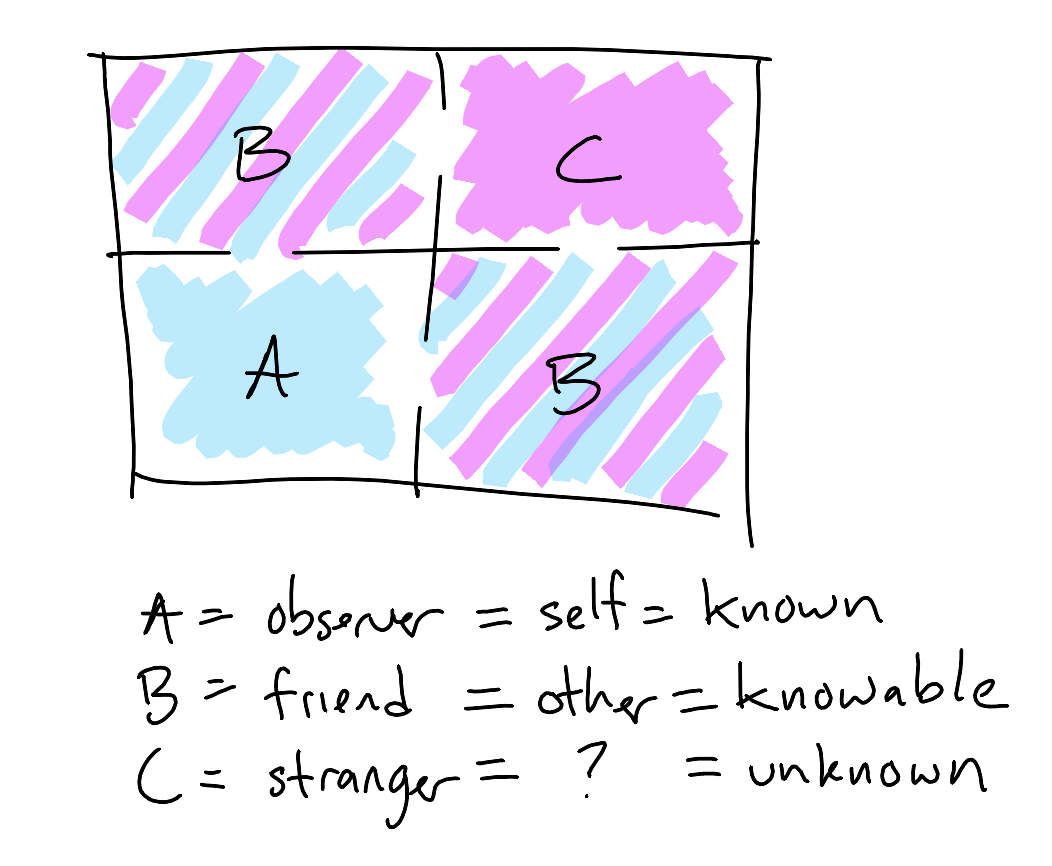 B C
A B
A = observer = self = known
B = friend = other = knowable
C = stranger = ? = unknown